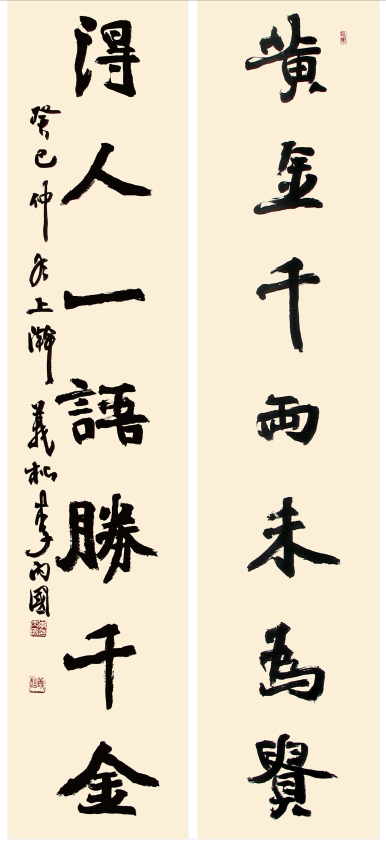 黄金千両未為賢
得人一語勝千金
癸巳仲冬上瀚義松李丙國